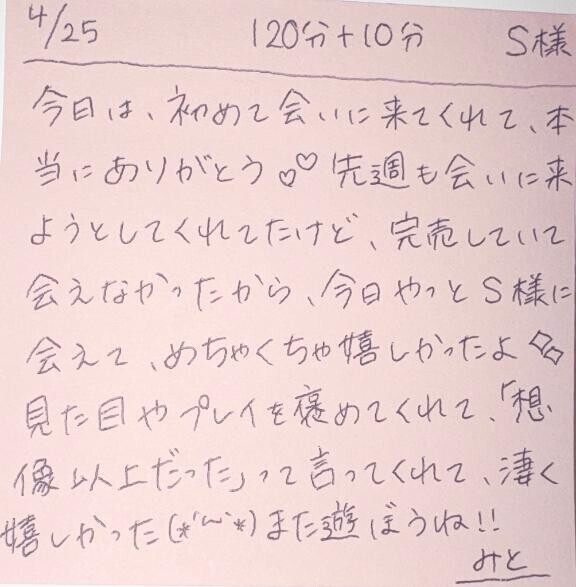 4/25 120分+10分 S様
今日は、初めて会いに来てくれて、本
当にありがとう♡♡先週も会いに来
ようとしてくれてたけど、完売していて
会えなかったから、今日やっとS様に
会えて、めちゃくちゃ嬉しかったよ
見た目やプレイを褒めてくれて、「想
像以上だった」って言ってくれて、凄く
嬉しかった(*´ω`*)また遊ぼうね!!
みと